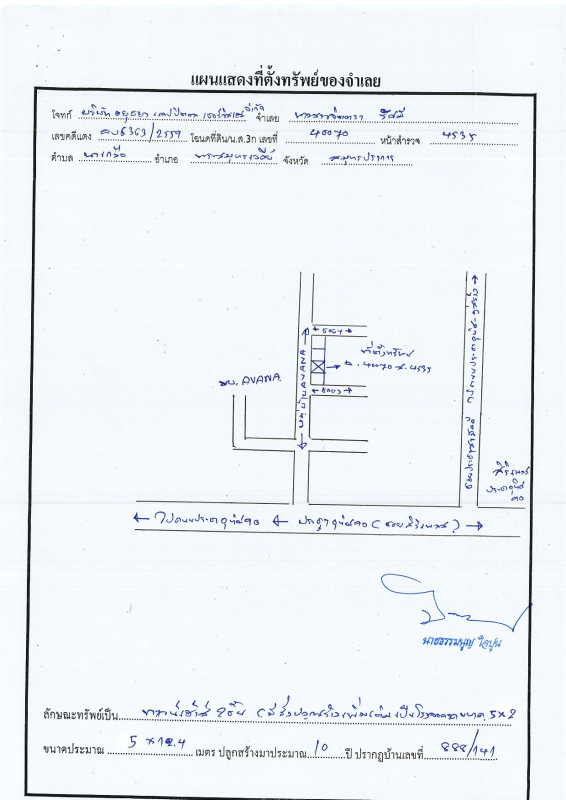 แผนแสดงที่ตั้งทรัพย์ของจำเลย
โจทก์ บริษัท อยุธยา แคปปิตอล เซอร์วิสเซส จำกัด จำเลย
เลขคดีแดง ผบ6363/2559 โฉนดที่ดิน/น.ส.3ก เลขที่ 40070 หน้าสำรวจ 4535
ตำบล นาเกลือ อำเภอ พระสมุทรเจดีย์ จังหวัด สมุทรปราการ
ซอย4
ที่ตั้งทรัพย์
ฉ.40070 ส.4535
ซอย3
หมู่บ้านAVANA
มบ. AVANA.
ประชาอุทิศ
90
ไปถนนประชาอุทิศ90
ประชาอุทิศ90 (
นายธรรมนูญ ใจปูน
ลักษณะทรัพย์เป็น ทาวน์เฮ้าส์ 2ชั้น (มีสิ่งปลูกสร้างเพิ่มเติมเป็นโรงจอดรถขนาด 5x2
ขนาดประมาณ 5 x 12.4 เมตร ปลูกสร้างมาประมาณ 10 ปี ปรากฏบ้านเลขที่ 888/141